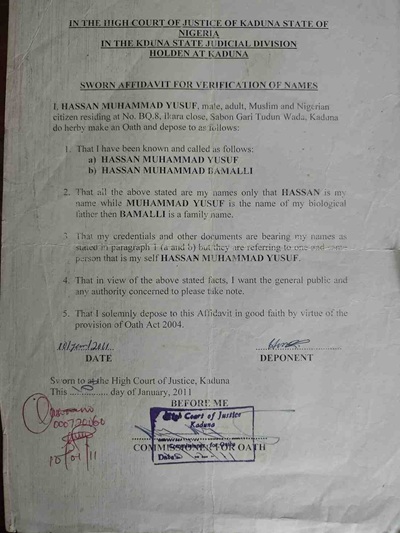 IN THE HIGH COURT OF JUSTICE OF KADUNA STATE OF
NIGERIA
IN THE KDUNA STATE JUDICIAL DIVISION
HOLDEN AT KADUNA
SWORN AFFIDAVIT FOR VERIFICATION OF NAMES
I, HASSAN MUHAMMAD YUSUF, male, adult, Muslim and Nigerian
citizen residing at No. BQ.8, Ibara close, Sabon Gari Tudun Wada, Kaduna
do herby make an Oath and depose to as follows:
1. That I have been known and called as follows:
a) HASSAN MUHAMMAD YUSUF
b) HASSAN MUHAMMAD BAMALLI
2. That all the above stated are my names only that HASSAN is my
name while MUHAMMAD YUSUF is the name of my biological
father then BAMALLI is a family name.
3. That my credentials and other documents are bearing my names as
stated in paragraph 1 (a and b) but they are referring to one and same
person that is my self HASSAN MUHAMMAD YUSUF.
4. That in view of the above stated facts, I want the general public and
any authority concerned to please take note.
5. That I solemnly depose to this Affidavit in good faith by virtue of the
provision of Oath Act 2004.
DATE DEPONENT
Sworn to at the High Court of Justice, Kaduna
This 10 day of January, 2011
BEFORE ME
High Court of Justice
Kaduna
Commissioner for Oaths
Date
COMMISSIONER FOR OATH
10/01/11